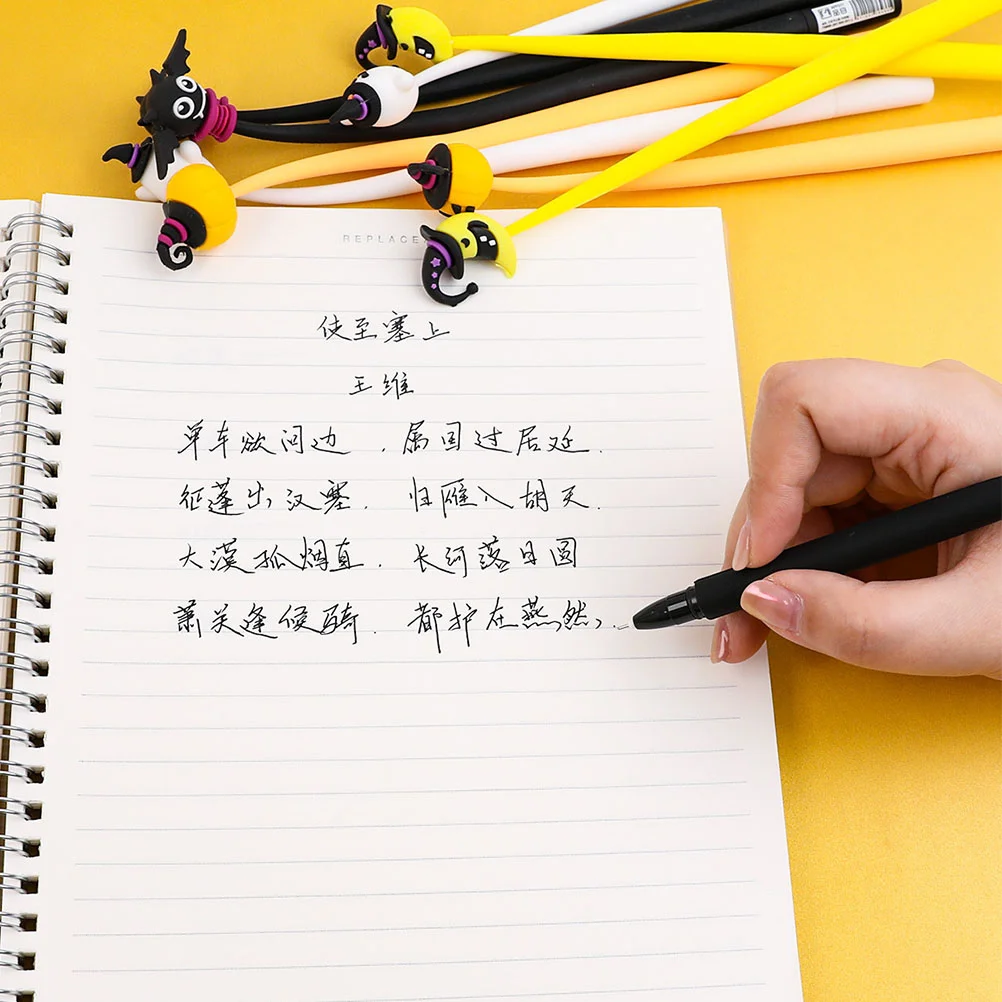 REPLACE
使至塞上
王维
单车欲问边，属国过居延.
征蓬出汉塞. 归雁入胡天.
大漠孤烟直. 长河落日圆
萧关逢候骑. 都护在燕然.